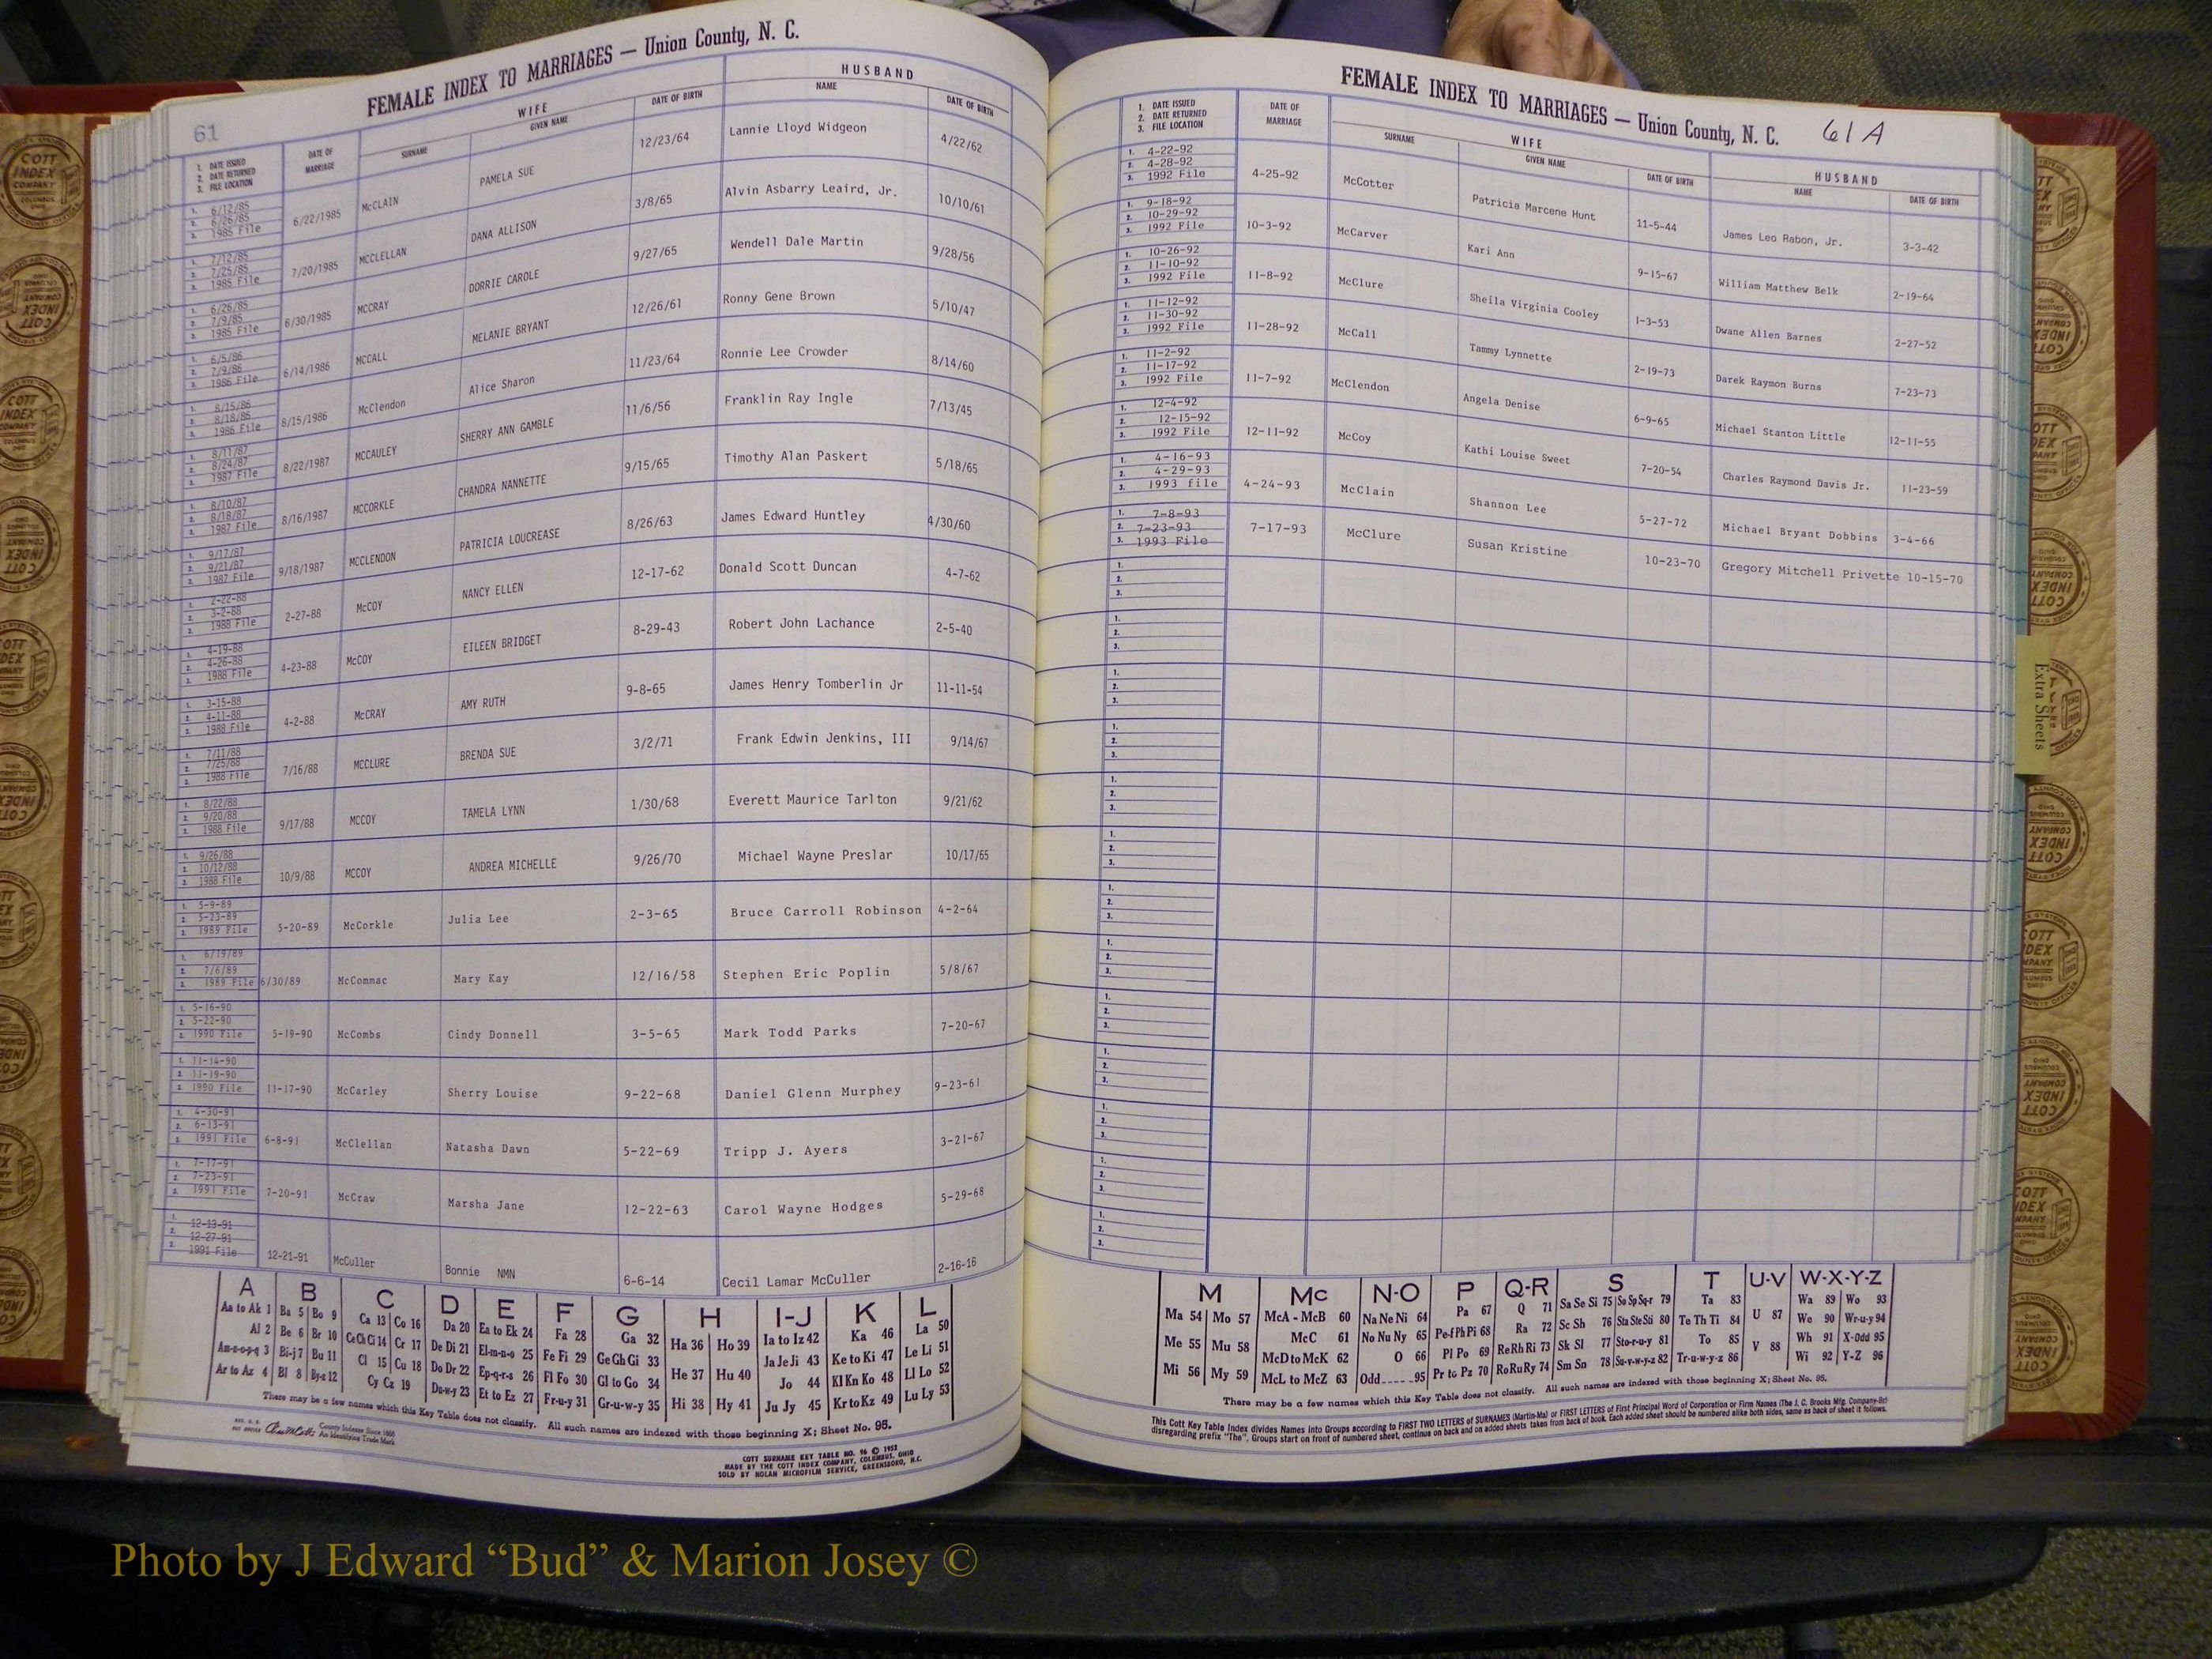 61
FEMALE INDEX TO MARRIAGES — Union County, N. C.
1. DATE ISSUED
2. DATE RETURNED
3. FILE LOCATION
DATE OF MARRIAGE
WIFE
SURNAME
GIVEN NAME
DATE OF BIRTH
HUSBAND
NAME
DATE OF BIRTH
1. 6/12/85
2. 6/26/85
3. 1985 File
6/22/1985 McCLAIN PAMELA SUE 12/23/64 Lannie Lloyd Widgeon 4/22/62
1. 7/12/85
2. 7/25/85
3. 1985 File
7/20/1985 MCCLELLAN DANA ALLISON 3/8/65 Alvin Asbarry Leaird, Jr. 10/10/61
1. 6/26/85
2. 7/9/85
3. 1985 File
6/30/1985 MCCRAY DORRIE CAROLE 9/27/65 Wendell Dale Martin 9/28/56
1. 6/5/86
2. 7/9/86
3. 1986 File
6/14/1986 MCCALL MELANIE BRYANT 12/26/61 Ronny Gene Brown 5/10/47
1. 8/15/86
2. 8/18/86
3. 1986 File
8/15/1986 McClendon Alice Sharon 11/23/64 Ronnie Lee Crowder 8/14/60
1. 8/11/87
2. 8/24/87
3. 1987 File
8/22/1987 MCCAULEY SHERRY ANN GAMBLE 11/6/56 Franklin Ray Ingle 7/13/45
1. 8/10/87
2. 8/18/87
3. 1987 File
8/16/1987 MCCORKLE CHANDRA NANNETTE 9/15/65 Timothy Alan Paskert 5/18/65
1. 9/17/87
2. 9/21/87
3. 1987 File
9/18/1987 MCCLENDON PATRICIA LOUCREASE 8/26/63 James Edward Huntley 4/30/60
1. 2-22-88
2. 3-2-88
3. 1988 File
2-27-88 McCOY NANCY ELLEN 12-17-62 Donald Scott Duncan 4-7-62
1. 4-19-88
2. 4-26-88
3. 1988 File
4-23-88 McCOY EILEEN BRIDGET 8-29-43 Robert John Lachance 2-5-40
1. 3-15-88
2. 4-11-88
3. 1988 File
4-2-88 McCRAY AMY RUTH 9-8-65 James Henry Tomberlin Jr 11-11-54
1. 7/11/88
2. 7/25/88
3. 1988 File
7/16/88 MCCLURE BRENDA SUE 3/2/71 Frank Edwin Jenkins, III 9/14/67
1. 8/22/88
2. 9/20/88
3. 1988 File
9/17/88 MCCOY TAMELA LYNN 1/30/68 Everett Maurice Tarlton 9/21/62
1. 9/26/88
2. 10/12/88
3. 1988 File
10/9/88 MCCOY ANDREA MICHELLE 9/26/70 Michael Wayne Preslar 10/17/65
1. 5-9-89
2. 5-23-89
3. 1989 File
5-20-89 McCorkle Julia Lee 2-3-65 Bruce Carroll Robinson 4-2-64
1. 6/19/89
2. 7/6/89
3. 1989 File
6/30/89 McCommac Mary Kay 12/16/58 Stephen Eric Poplin 5/8/67
1. 5-16-90
2. 5-22-90
3. 1990 File
5-19-90 McCombs Cindy Donnell 3-5-65 Mark Todd Parks 7-20-67
1. 11-14-90
2. 11-19-90
3. 1990 File
11-17-90 McCarley Sherry Louise 9-22-68 Daniel Glenn Murphey 9-23-61
1. 4-30-91
2. 6-13-91
3. 1991 File
6-8-91 McClellan Natasha Dawn 5-22-69 Tripp J. Ayers 3-21-67
1. 7-17-91
2. 7-23-91
3. 1991 File
7-20-91 McCraw Marsha Jane 12-22-63 Carol Wayne Hodges 5-29-68
1. 12-13-91
2. 12-27-91
3. 1991 File
12-21-91 McCuller Bonnie NMN 6-6-14 Cecil Lamar McCuller 2-16-16
A B C D E F G H I-J K L
Aa to Ak 1 Ba 5 Bo 9 Ca 13 Co 16 Da 20 Ea to Ek 24 Fa 28 Ga 32 Ha 36 Ho 39 Ia to Iz 42 Ka 46 La 50
Al 2 Be 6 Br 10 Ce Ch Ci 14 Cr 17 De Di 21 El-m-n-o 25 Fe Fi 29 Ge Gh Gi 33 He 37 Hu 40 Ja Je Ji 43 Ke to Ki 47 Le Li 51
Am-n-o-p-q 3 Bi-j 7 Bu 11 Cl 15 Cu 18 Do Dr 22 Ep-q-r-s 26 Fl Fo 30 Gl to Go 34 Hi 38 Hy 41 Jo 44 Kl Kn Ko 48 Ll Lo 52
Ar to Az 4 Bl 8 By-z 12 Cy Cz 19 Du-w-y 23 Et to Ez 27 Fr-u-y 31 Gr-u-w-y 35 Ju Jy 45 Kr to Kz 49 Lu Ly 53
There may be a few names which this Key Table does not classify. All such names are indexed with those beginning X; Sheet No. 95.
County Indexes Since 1888
An Identifying Trade Mark
COTT SURNAME KEY TABLE NO. 96 © 1952
MADE BY THE COTT INDEX COMPANY, COLUMBUS, OHIO
SOLD BY NOLAN MICROFILM SERVICE, GREENSBORO, N.C.
FEMALE INDEX TO MARRIAGES — Union County, N. C. 61A
1. DATE ISSUED
2. DATE RETURNED
3. FILE LOCATION
DATE OF MARRIAGE
WIFE
SURNAME
GIVEN NAME
DATE OF BIRTH
HUSBAND
NAME
DATE OF BIRTH
1. 4-22-92
2. 4-28-92
3. 1992 File
4-25-92 McCotter Patricia Marcene Hunt 11-5-44 James Leo Rabon, Jr. 3-3-42
1. 9-18-92
2. 10-29-92
3. 1992 File
10-3-92 McCarver Kari Ann 9-15-67 William Matthew Belk 2-19-64
1. 10-26-92
2. 11-10-92
3. 1992 File
11-8-92 McClure Sheila Virginia Cooley 1-3-53 Dwane Allen Barnes 2-27-52
1. 11-12-92
2. 11-30-92
3. 1992 File
11-28-92 McCall Tammy Lynnette 2-19-73 Darek Raymon Burns 7-23-73
1. 11-2-92
2. 11-17-92
3. 1992 File
11-7-92 McClendon Angela Denise 6-9-65 Michael Stanton Little 12-11-55
1. 12-4-92
2. 12-15-92
3. 1992 File
12-11-92 McCoy Kathi Louise Sweet 7-20-54 Charles Raymond Davis Jr. 11-23-59
1. 4-16-93
2. 4-29-93
3. 1993 file
4-24-93 McClain Shannon Lee 5-27-72 Michael Bryant Dobbins 3-4-66
1. 7-8-93
2. 7-23-93
3. 1993 File
7-17-93 McClure Susan Kristine 10-23-70 Gregory Mitchell Privette 10-15-70
1.
2.
3.
1.
2.
3.
1.
2.
3.
1.
2.
3.
1.
2.
3.
1.
2.
3.
1.
2.
3.
1.
2.
3.
1.
2.
3.
1.
2.
3.
1.
2.
3.
1.
2.
3.
1.
2.
3.
Extra Sheets
M Mc N-O P Q-R S T U-V W-X-Y-Z
Ma 54 Mo 57 McA - McB 60 Na Ne Ni 64 Pa 67 Q 71 Sa Se Si 75 So Sp Sq-r 79 Ta 83 U 87 Wa 89 Wo 93
Me 55 Mu 58 McC 61 No Nu Ny 65 Pe-f Ph Pi 68 Ra 72 Sc Sh 76 Sta Ste Sti 80 Te Th Ti 84 V 88 We 90 Wr-u-y 94
Mi 56 My 59 McD to McK 62 O 66 Pl Po 69 Re Rh Ri 73 Sk Sl 77 Sto-r-u-y 81 To 85 Wh 91 X-Odd 95
McL to McZ 63 Odd 95 Pr to Pz 70 Ro Ru Ry 74 Sm Sn 78 Su-v-w-y-z 82 Tr-u-w-y-z 86 Wi 92 Y-Z 96
There may be a few names which this Key Table does not classify. All such names are indexed with those beginning X; Sheet No. 95.
This Cott Key Table Index divides Names into Groups according to FIRST TWO LETTERS of SURNAMES (Martin-Ma) or FIRST LETTERS of First Principal Word of Corporation or Firm Names (The J. C. Brooks Mfg. Company-Br)
disregarding prefix "The". Groups start on front of numbered sheet, continue on back and on added sheets taken from back of book. Each added sheet should be numbered alike both sides, same as back of sheet it follows.
COTT
INDEX
COMPANY
COLUMBUS
OHIO
Photo by J Edward “Bud” & Marion Josey ©